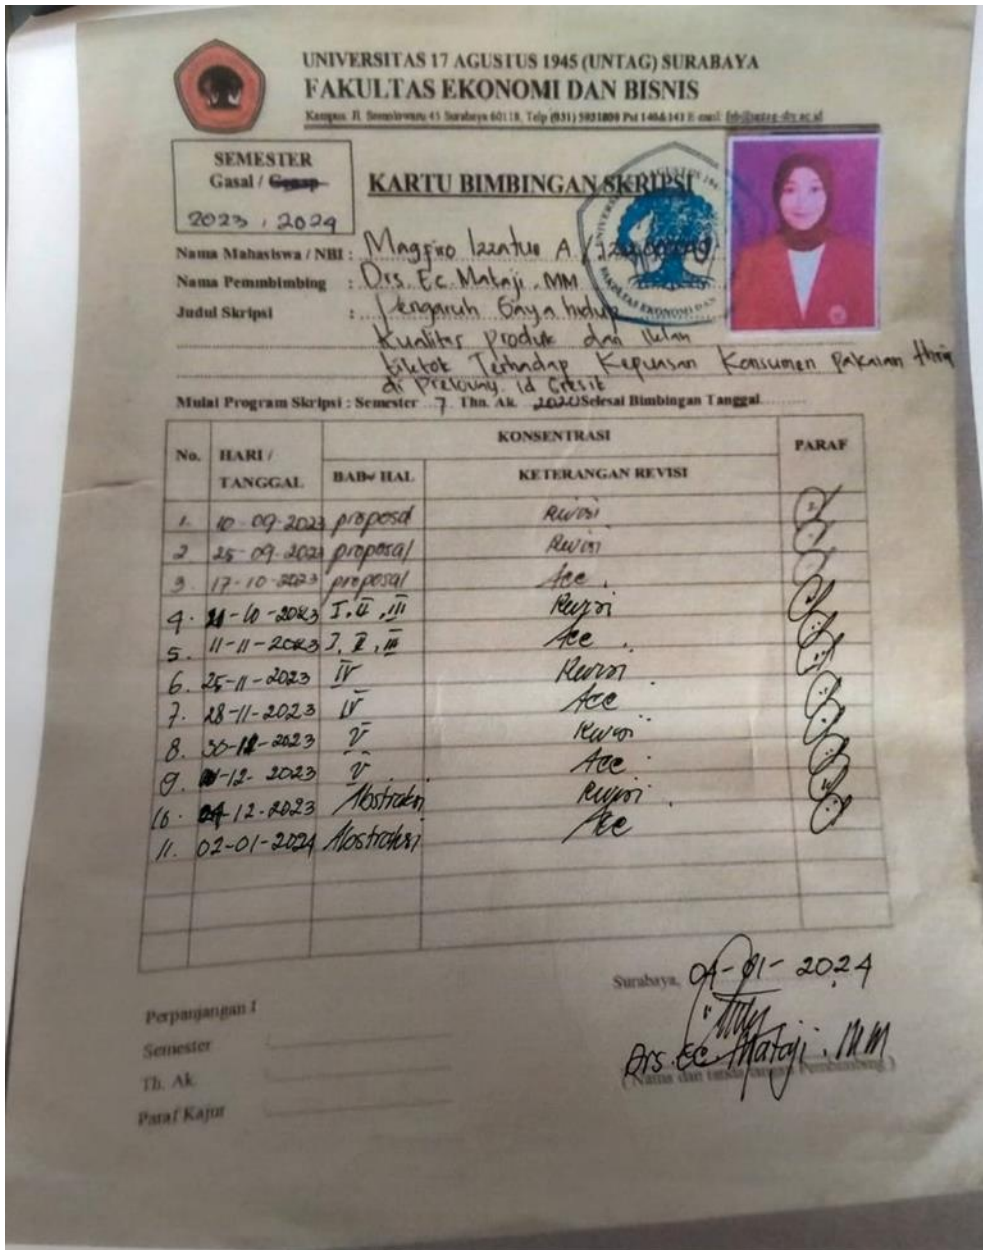 UNIVERSITAS 17 AGUSTUS 1945 (UNTAG) SURABAYA
FAKULTAS EKONOMI DAN BISNIS
Kampus Jl. Semolowaru 45 Surabaya 60118, Telp (031) 5931800 Pst 140&141 E-mail:
SEMESTER
Gasal / Genap
2023 / 2024
KARTU BIMBINGAN SKRIPSI
Nama Mahasiswa / NBI : Magfiro Izzatus A /
Nama Pemmbimbing : Drs. Ec. Mataji, MM
Judul Skripsi : Pengaruh Gaya hidup
Kualitas produk dan Iklan
tiktok Terhadap Kepuasan Konsumen pakaian
di id Gresik
Mulai Program Skripsi : Semester 7 Thn. Ak. Selesai Bimbingan Tanggal
No. HARI / TANGGAL KONSENTRASI PARAF
BAB HAL KETERANGAN REVISI
1. 10-09-2023 proposal Revisi
2 25-09-2023 proposal Revisi
3. 17-10-2023 proposal Acc.
4. -10-2023 I, II, III Revisi
5. 11-11-2023 I, II, III Acc.
6. 25-11-2023 IV Revisi
7. 28-11-2023 IV Acc
8. 2023 V Revisi
9. -12-2023 V Acc
10. -12-2023 Abstraksi Revisi
11. 02-01-2024 Abstraksi Acc
Surabaya, 04-01-2024
Perpanjangan I
Semester
Th. Ak.
Paraf Kajur
Drs. Ec. Mataji. MM
(Nama dan tanda tangan Pembimbing)